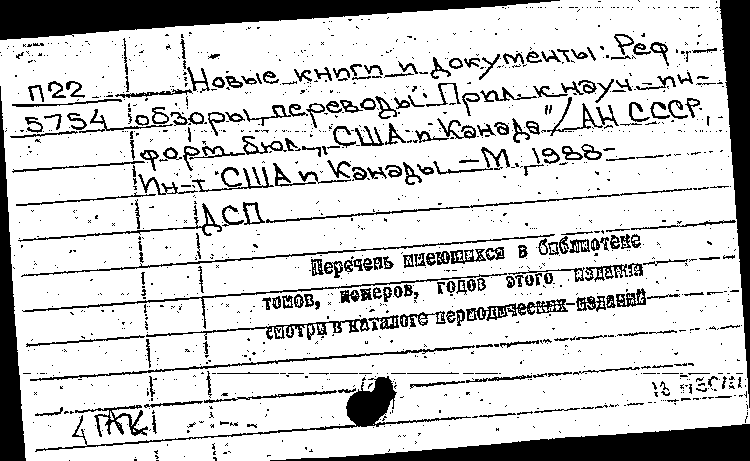 П22
5754
Новые книги и документы: Реф.,
обзоры, переводы: Прил. к науч.-ин-
форм. бюл. „США и Канада"/ АН СССР,
Ин-т США и Канады. – М., 1988-
ДСП.
Перечень имеющихся в библиотеке
томов, номеров, годов этого издания
смотри в каталоге периодических изданий